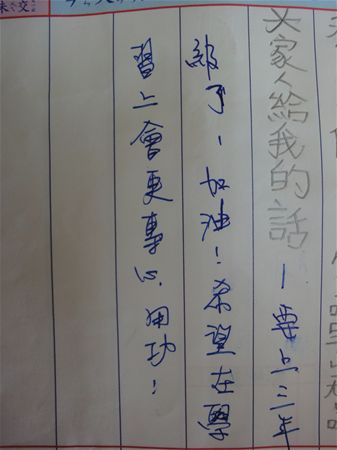 未交
家人給我的話－要上三年
級了，加油！希望在學
習上會更專心、用功！